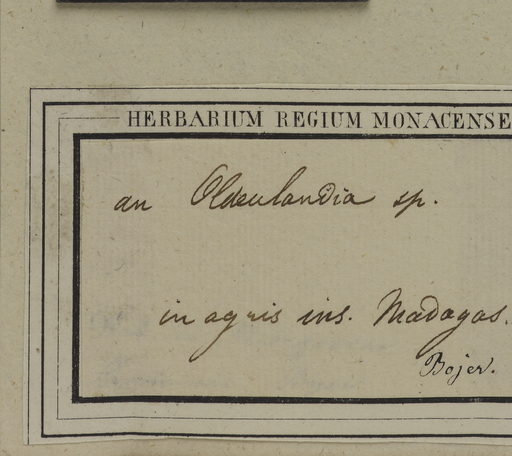 HERBARIUM REGIUM MONACENSE
an Oldenlandia sp.
in agris ins. Madagas.
Bojer.